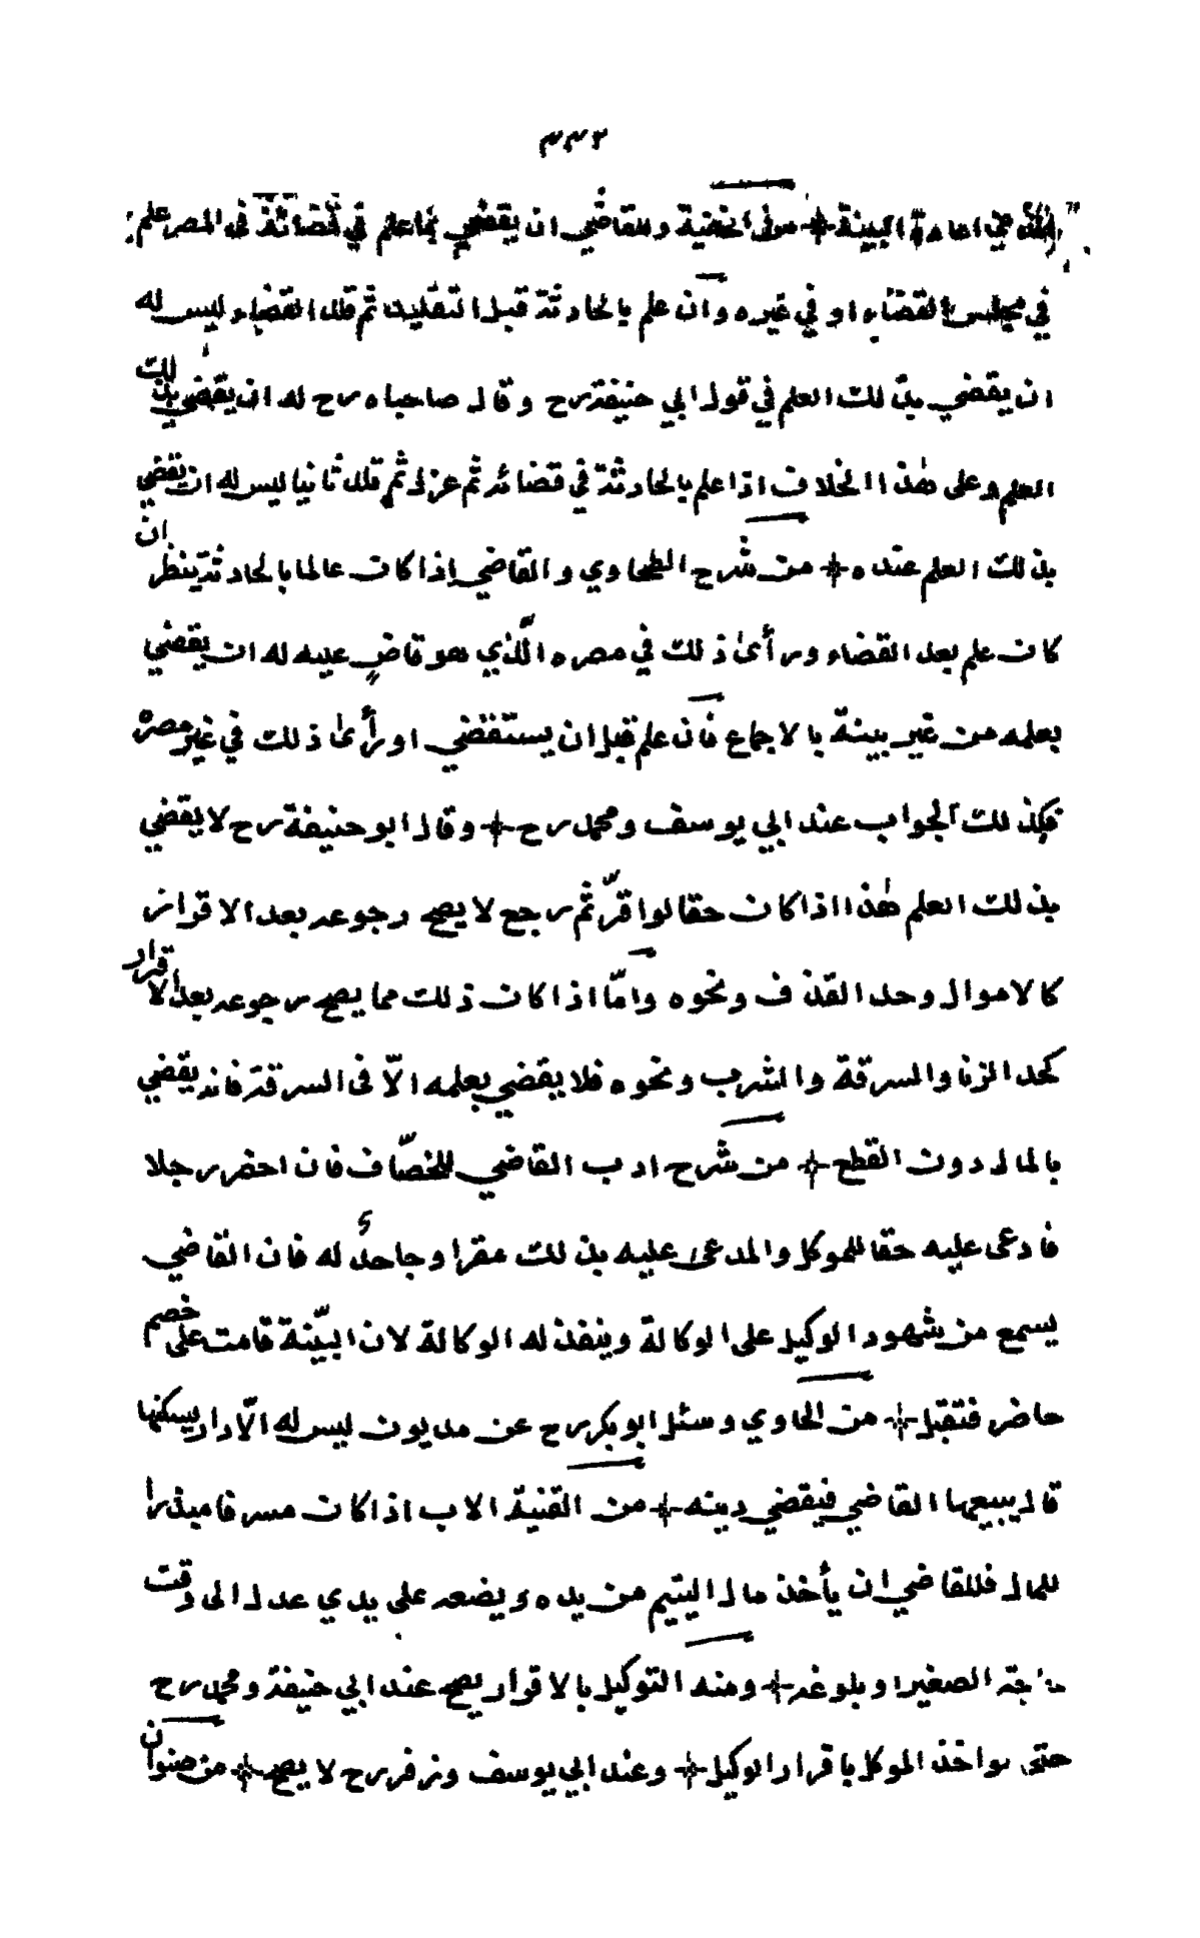 ٣٤٢
في اعادة البينة ÷ من الحنفية وللقاضي ان يقضي بما علم في قضائه في المصر علم
في مجلس القضاء او في غيره وان علم بالحادثة قبل التقليد ثم قلد القضاء ليس له
ان يقضي بذلك العلم في قول ابي حنيفة رح وقال صاحباه رح له ان يقضي بذلك
العلم وعلى هٰذا الخلاف اذا علم بالحادثة في قضائه ثم عزل ثم قلد ثانيا ليس له ان يقضي
بذلك العلم عنده ÷ من شرح الطحاوي والقاضي اذا كان عالما بالحادثة ينظر ان
كان علم بعد القضاء ورأىٰ ذلك في مصره الّذي هو قاضٍ عليه له ان يقضي
بعلمه من غير بينة بالاجماع فان علم قبل ان يستقضي او رأىٰ ذلك في غير مصره
فكذلك الجواب عند ابي يوسف ومحمد رح ÷ وقال ابو حنيفة رح لا يقضي
بذلك العلم هٰذا اذا كان حقا لو اقرّ ثم رجع لا يصح رجوعه بعد الاقرار
كالاموال وحد القذف ونحوه وامّا اذا كان ذلك مما يصح رجوعه بعد الاقرار
كحد الزنا والسرقة والشرب ونحوه فلا يقضي بعلمه الّا فى السرقة فانه يقضي
بالمال دون القطع ÷ من شرح ادب القاضي للخصّاف فان احضر رجلا
فادعى عليه حقا للموكل والمدعى عليه بذلك مقرا و جاحدٌ له فان القاضي
يسمع من شهود الوكيل على الوكالة وينفذ له الوكالة لان البيّنة قامت على خصم
حاضر فتقبل ÷ من الحاوي وسئل ابو بكر رح عن مديون ليس له الّا دار يسكنها
قال يبيعها القاضي فيقضي دينه ÷ من القنية الاب اذا كان مسرفا مبذرا
للمال فللقاضي ان يأخذ مال اليتيم من يده ويضعه على يدي عدل الى وقت
حاجة الصغير او بلوغه ÷ ومنه التوكيل بالاقرار يصح عند ابي حنيفة ومحمد رح
حتى يواخذ الموكل باقرار الوكيل ÷ وعند ابي يوسف وزفر رح لا يصح ÷ من صنوان